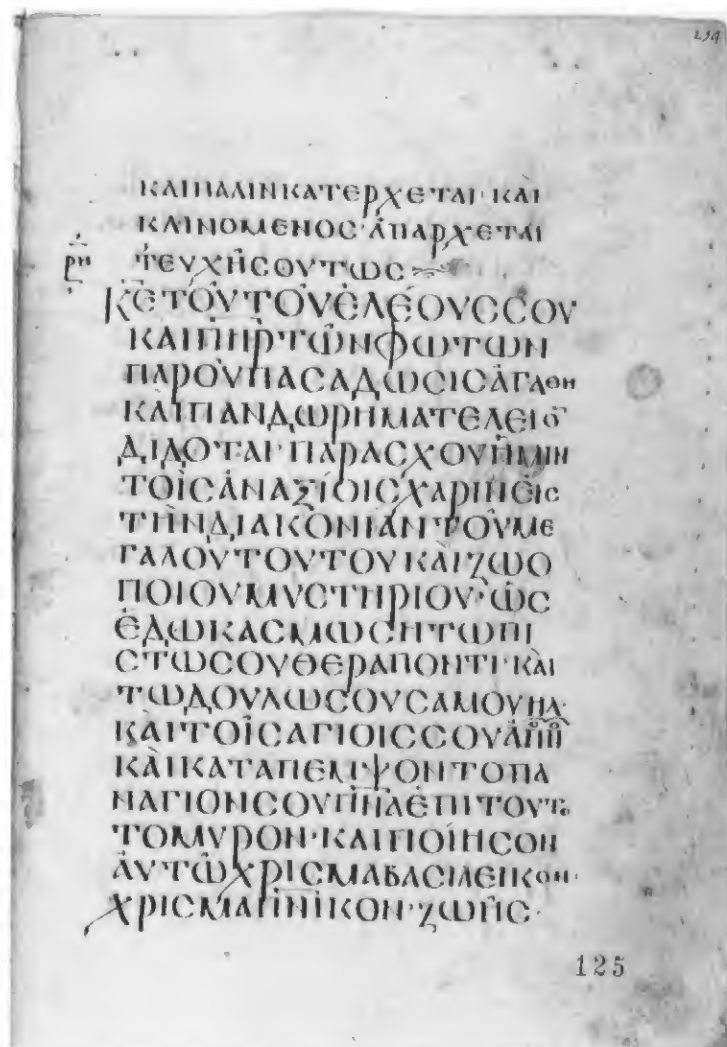 234
ΚΑΙ ΠΑΛΙΝ ΚΑΤΕΡΧΕΤΑΙ· ΚΑΙ
ΚΛΙΝΟΜΕΝΟΣ· ἈΠΑΡΧΕΤΑΙ
ΡΗ ΤΕΥΧΗΣ ΟΥΤΩΣ
ΚΕ ΤΟΥ ΤΟΥ ΕΛΕΟΥΣ ΣΟΥ
ΚΑΙ ΠΗΡ ΤΩΝ ΦΩΤΩΝ
ΠΑΡ ΟΥ ΠΑΣΑ ΔΩΣΙΣ ἈΓΑΘΗ
ΚΑΙ ΠΑΝ ΔΩΡΗΜΑ ΤΕΛΕΙΟ
ΔΙΔΟΤΑΙ· ΠΑΡΑΣΧΟΥ ΗΜΙΝ
ΤΟΙΣ ἈΝΑΞΙΟΙΣ ΧΑΡΙΝ ΕΙΣ
ΤΗΝ ΔΙΑΚΟΝΙΑΝ ΤΟΥ ΜΕ
ΓΑΛΟΥ ΤΟΥΤΟΥ ΚΑΙ ΖΩΟ
ΠΟΙΟΥ ΜΥΣΤΗΡΙΟΥ· ὩΣ
ΕΔΩΚΑΣ ΜΩΣΗ ΤΩ ΠΙ
ΣΤΩ ΣΟΥ ΘΕΡΑΠΟΝΤΙ· ΚΑΙ
ΤΩ ΔΟΥΛΩ ΣΟΥ ΣΑΜΟΥΗΛ
ΚΑΙ ΤΟΙΣ ΑΓΙΟΙΣ ΣΟΥ
ΚΑΙ ΚΑΤΑΠΕΜΨΟΝ ΤΟ ΠΑ
ΝΑΓΙΟΝ ΣΟΥ ΠΝΑ ΕΠΙ ΤΟΥΤΟ
ΤΟ ΜΥΡΟΝ· ΚΑΙ ΠΟΙΗΣΟΝ
ΑΥΤΩ ΧΡΙΣΜΑ ΒΑΣΙΛΕΙΚΟΝ·
ΧΡΙΣΜΑ ΠΝΙΚΟΝ· ΖΩΗΣ·
125